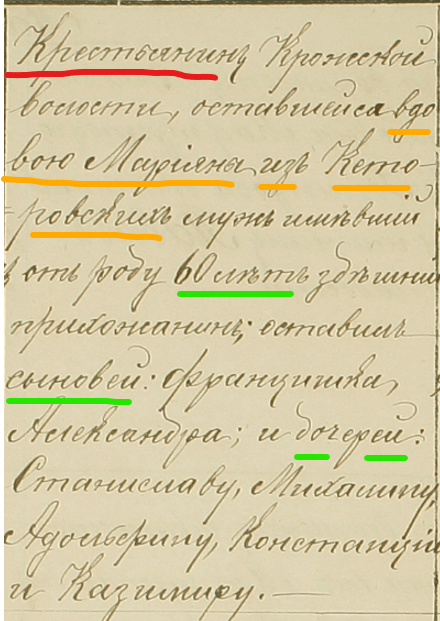 Крестьянинъ Крожской
волости, оставшейся вдо
вою Маріяна изъ Кето-
-ровскихъ мужъ имѣвшій
отъ роду 60 лѣтъ здѣшній
прихожанинъ; оставилъ
сыновей: Францишка,
Александра; и дочерей:
Станиславу, Михалину,
Адольфину, Констанцію
и Казимиру. —